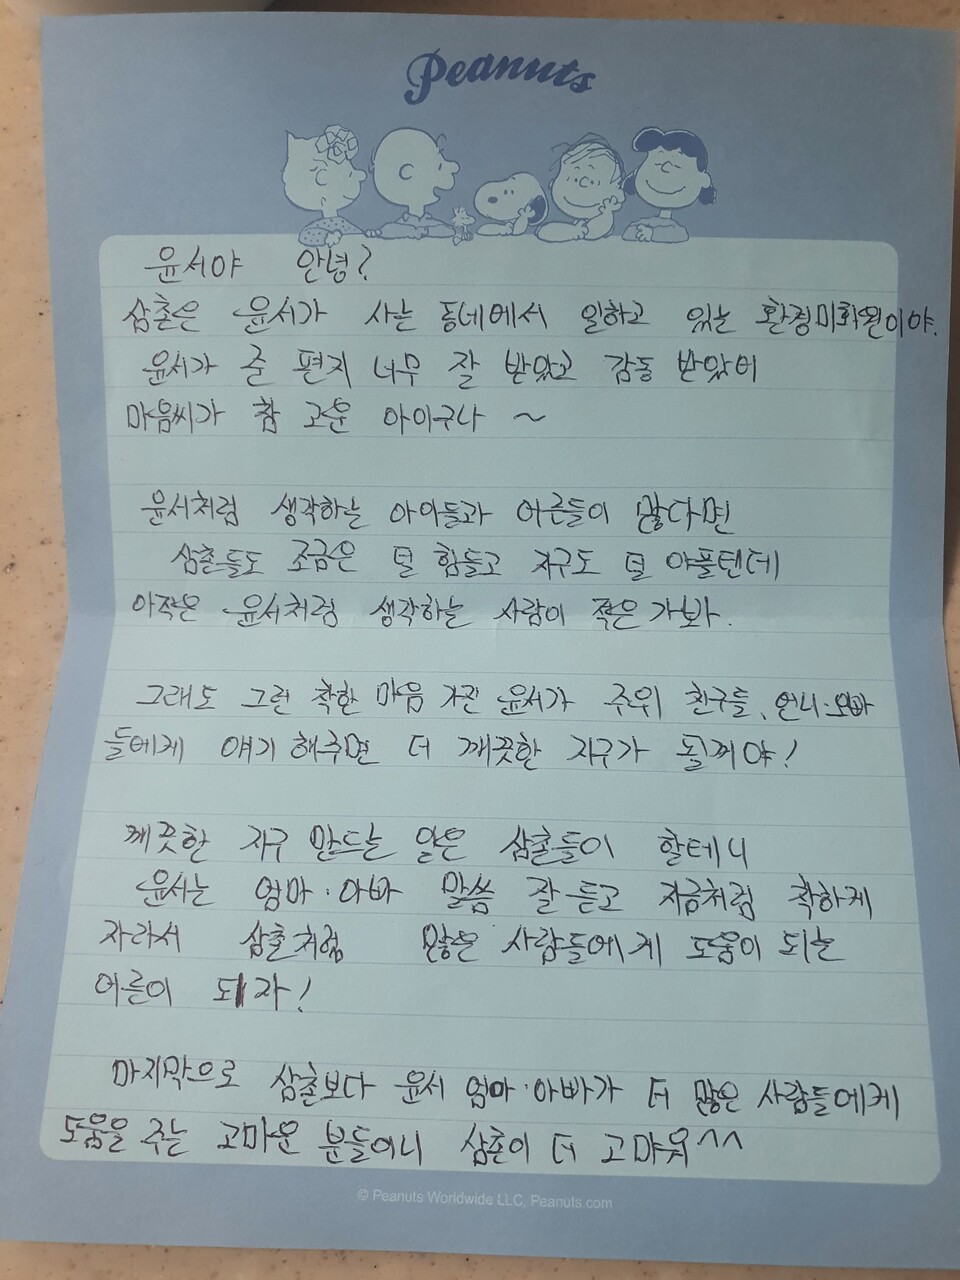 Peanuts
윤서야 안녕?
삼촌은 윤서가 사는 동네에서 일하고 있는 환경미화원이야.
윤서가 준 편지 너무 잘 받았고 감동 받았어
마음씨가 참 고운 아이구나 ~
윤서처럼 생각하는 아이들과 어른들이 많다면
삼촌들도 조금은 덜 힘들고 지구도 덜 아플텐데
아직은 윤서처럼 생각하는 사람이 적은가봐.
그래도 그런 착한 마음 가진 윤서가 주위 친구들, 언니·오빠
들에게 얘기해주면 더 깨끗한 지구가 될꺼야!
깨끗한 지구 만드는 일은 삼촌들이 할테니
윤서는 엄마·아빠 말씀 잘 듣고 지금처럼 착하게
자라서 삼촌처럼 많은 사람들에게 도움이 되는
어른이 되자!
마지막으로 삼촌보다 윤서 엄마·아빠가 더 많은 사람들에게
도움을 주는 고마운 분들이니 삼촌이 더 고마워^^
© Peanuts Worldwide LLC, Peanuts.com